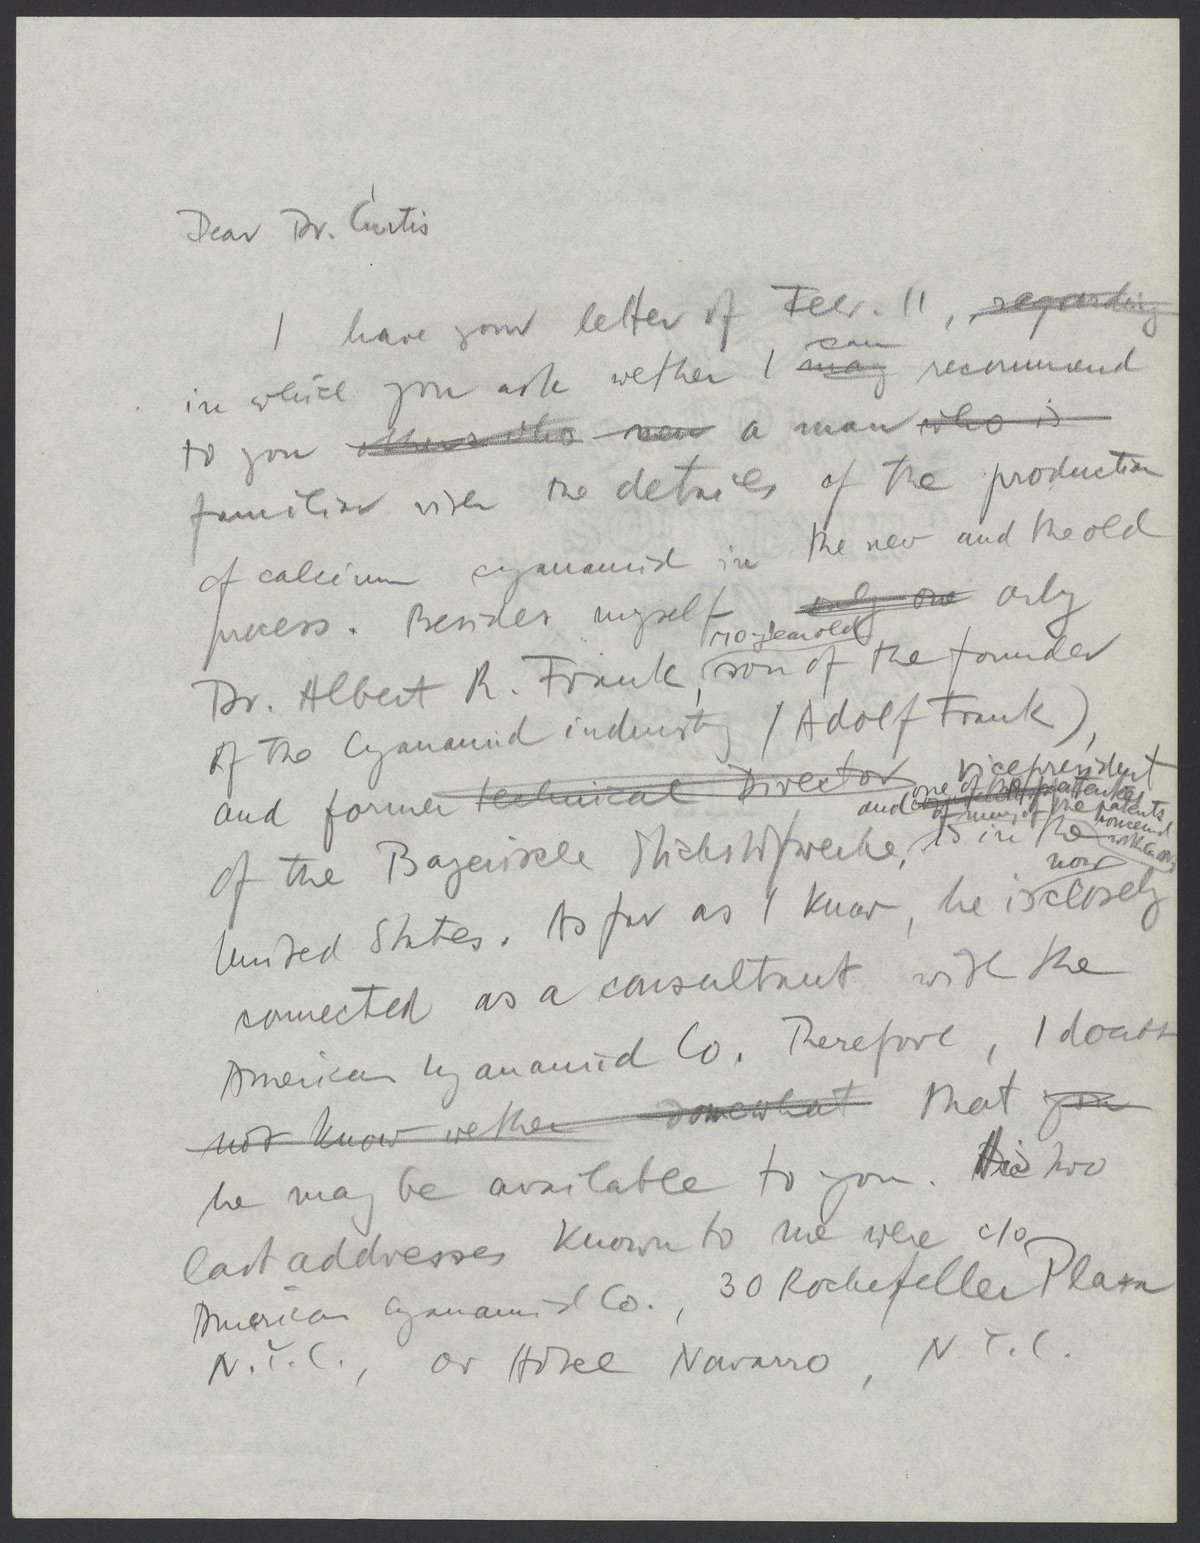 Dear Dr. Curtis
I have your letter of Febr. 11, regarding
can
in which you ask wether I may recommend
to you a man who is
familiar with the details of the production
of calcium cyanamid in the new and the old
process. Besides myself only one only
70-year old
Dr. Albert R. Frank, son of the founder
of the Cyanamid industry (Adolf Frank),
and former technical Director vicepresident
and one of the
of many of the patents
of the Bayerische Stickstoffwerke, is in the
now
United States. As far as I know, he is closely
connected as a consultant with the
American Cyanamid Co. Therefore, I doubt
not know wether somewhat that you
he may be available to you. His two
last addresses known to me were c/o
American Cyanamid Co., 30 Rochefeller Plaza
N.Y.C., or Hotel Navarro, N.Y.C.